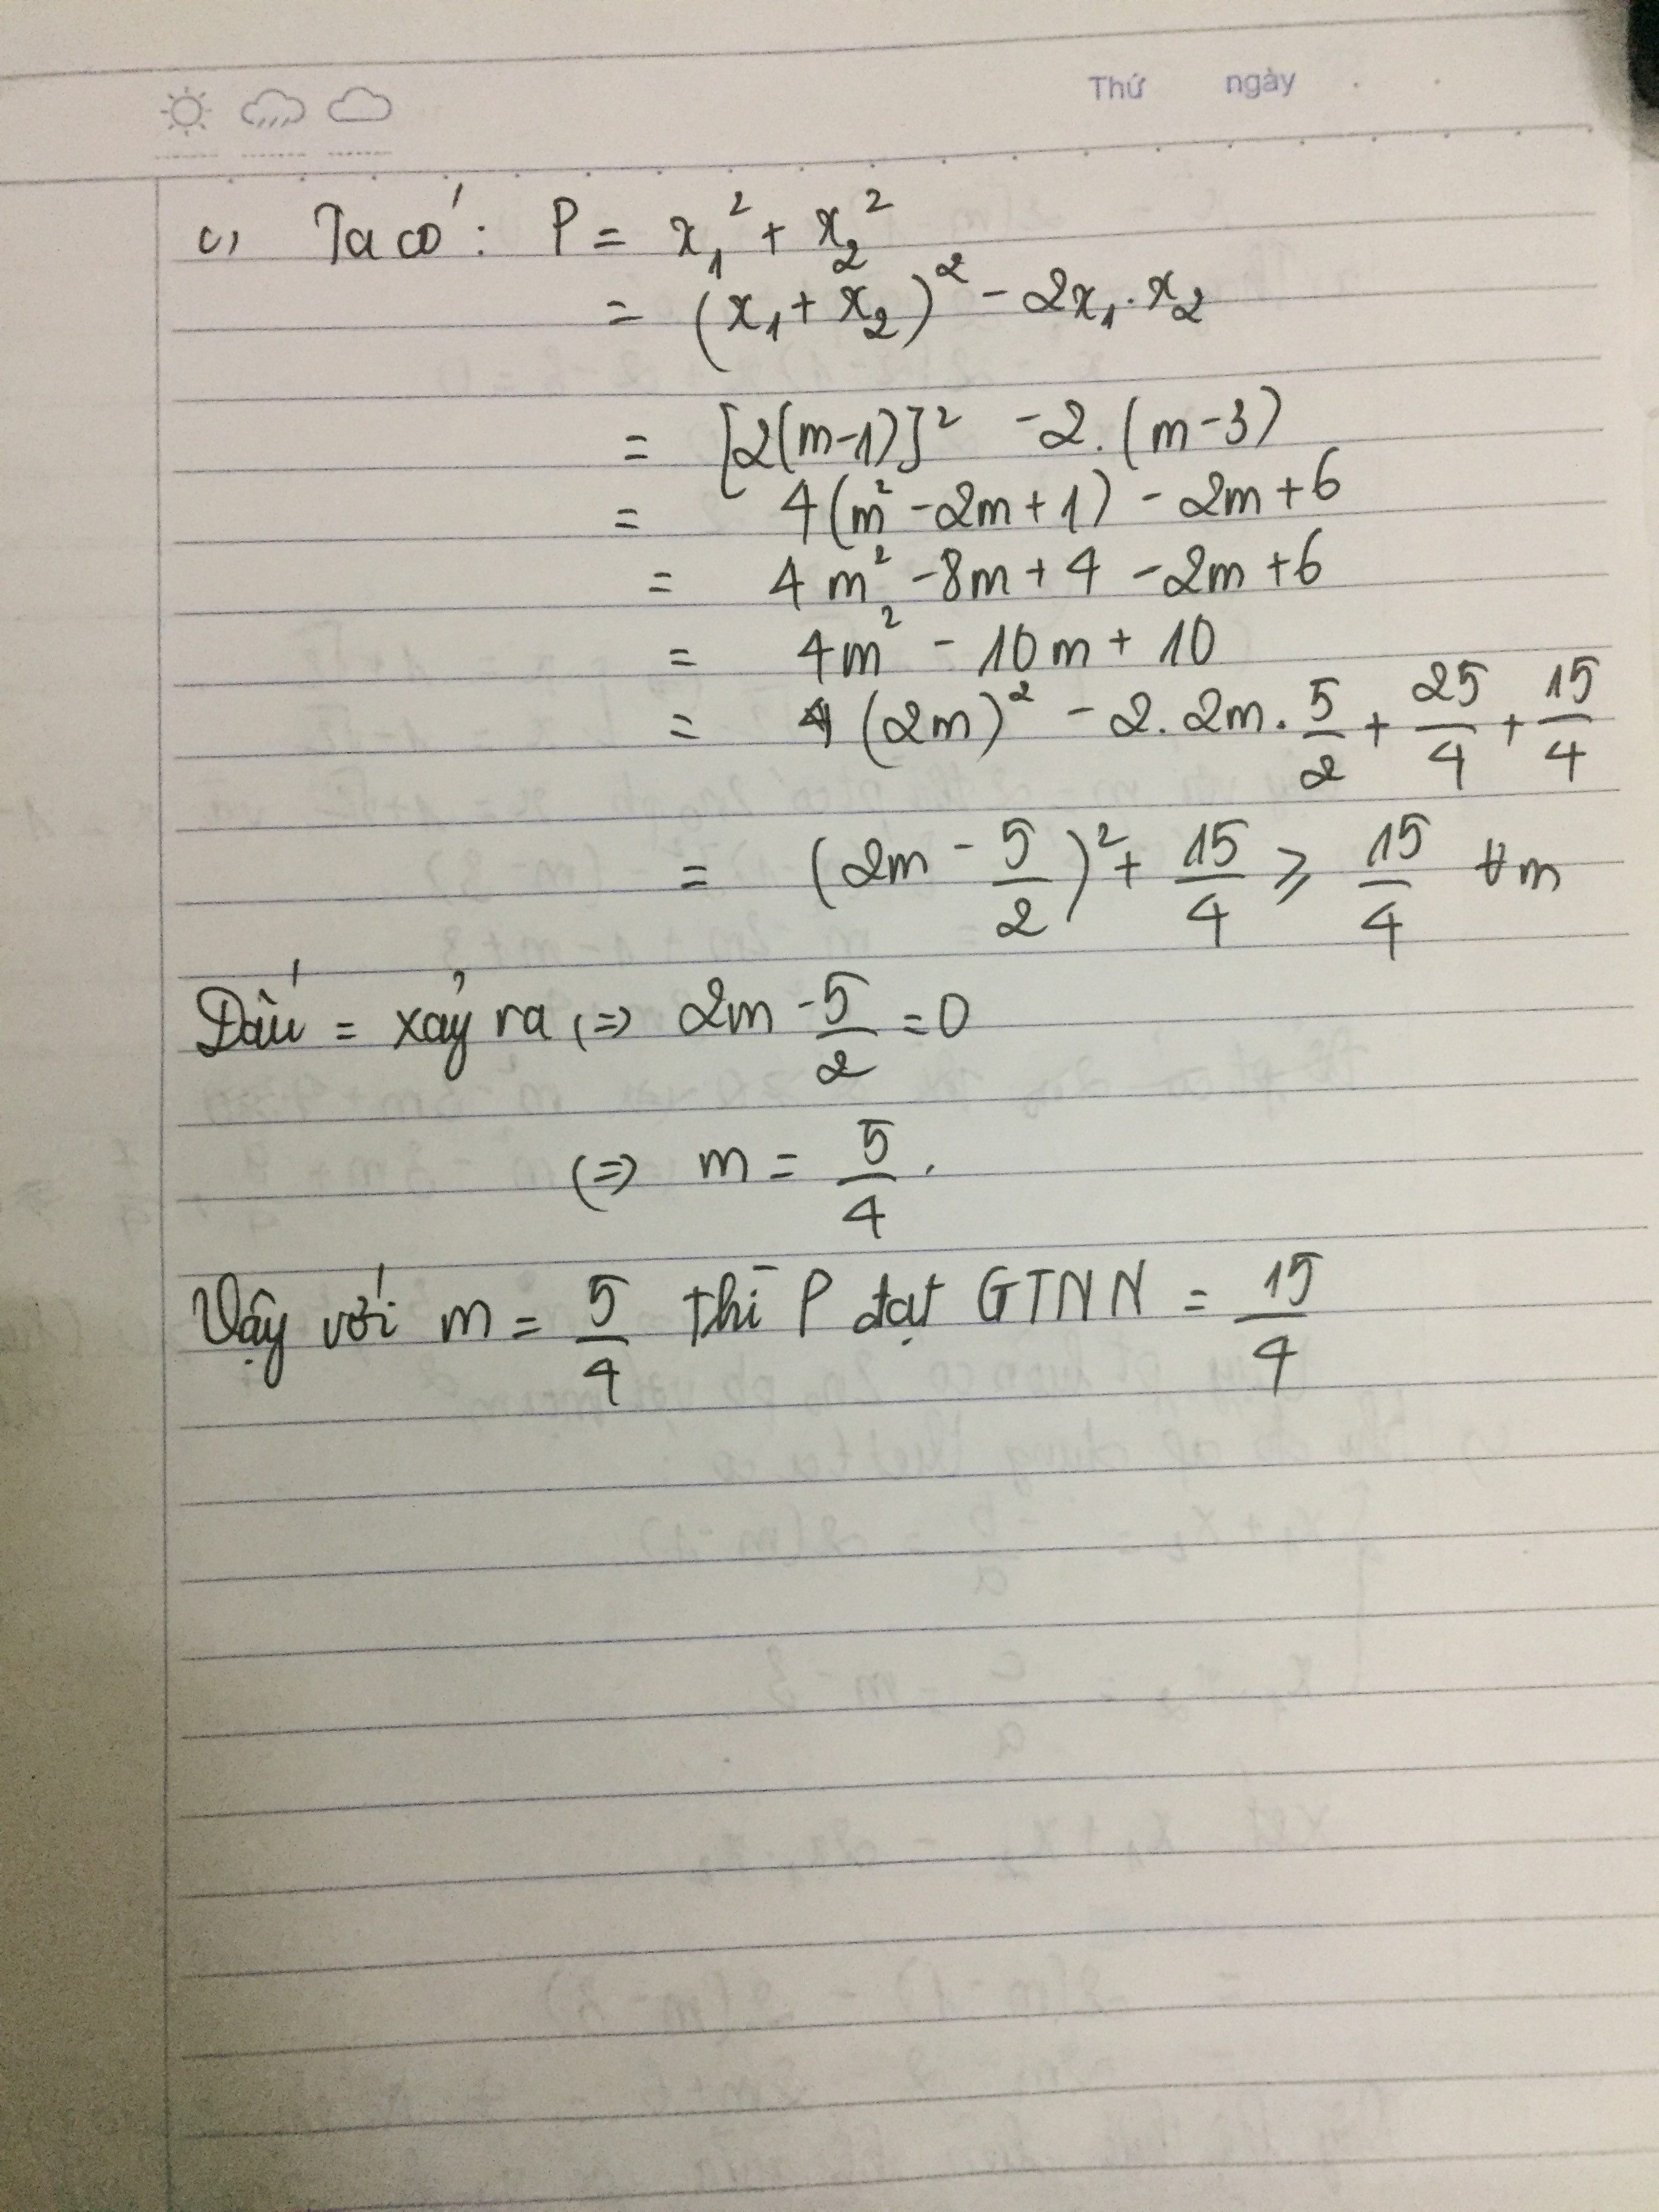 Thứ ngày
c, Ta có: P = x₁² + x₂²
= (x₁ + x₂)² - 2x₁.x₂
= [2(m-1)]² - 2.(m-3)
= 4(m² - 2m + 1) - 2m + 6
= 4m² - 8m + 4 - 2m + 6
= 4m² - 10m + 10
= (2m)² - 2.2m.5/2 + 25/4 + 15/4
= (2m - 5/2)² + 15/4 ⩾ 15/4 ∀m
Dấu = xảy ra (=) 2m - 5/2 = 0
(=) m = 5/4.
Vậy với m = 5/4 thì P đạt GTNN = 15/4